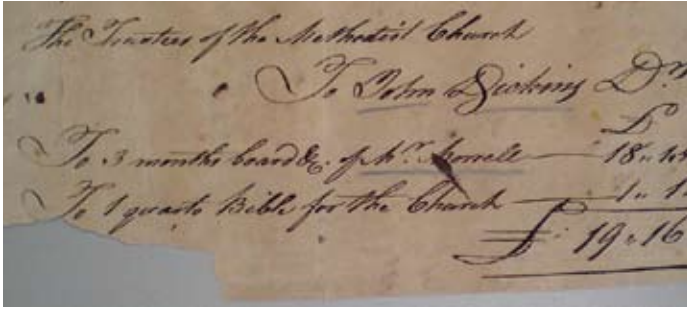 The Trustees of the Methodist Church
To John Dickins Dr
£
To 3 months board &c. of Mr. Morrell 18 "
To 1 quarto Bible for the Church 1 " 1
£ 19 " 16